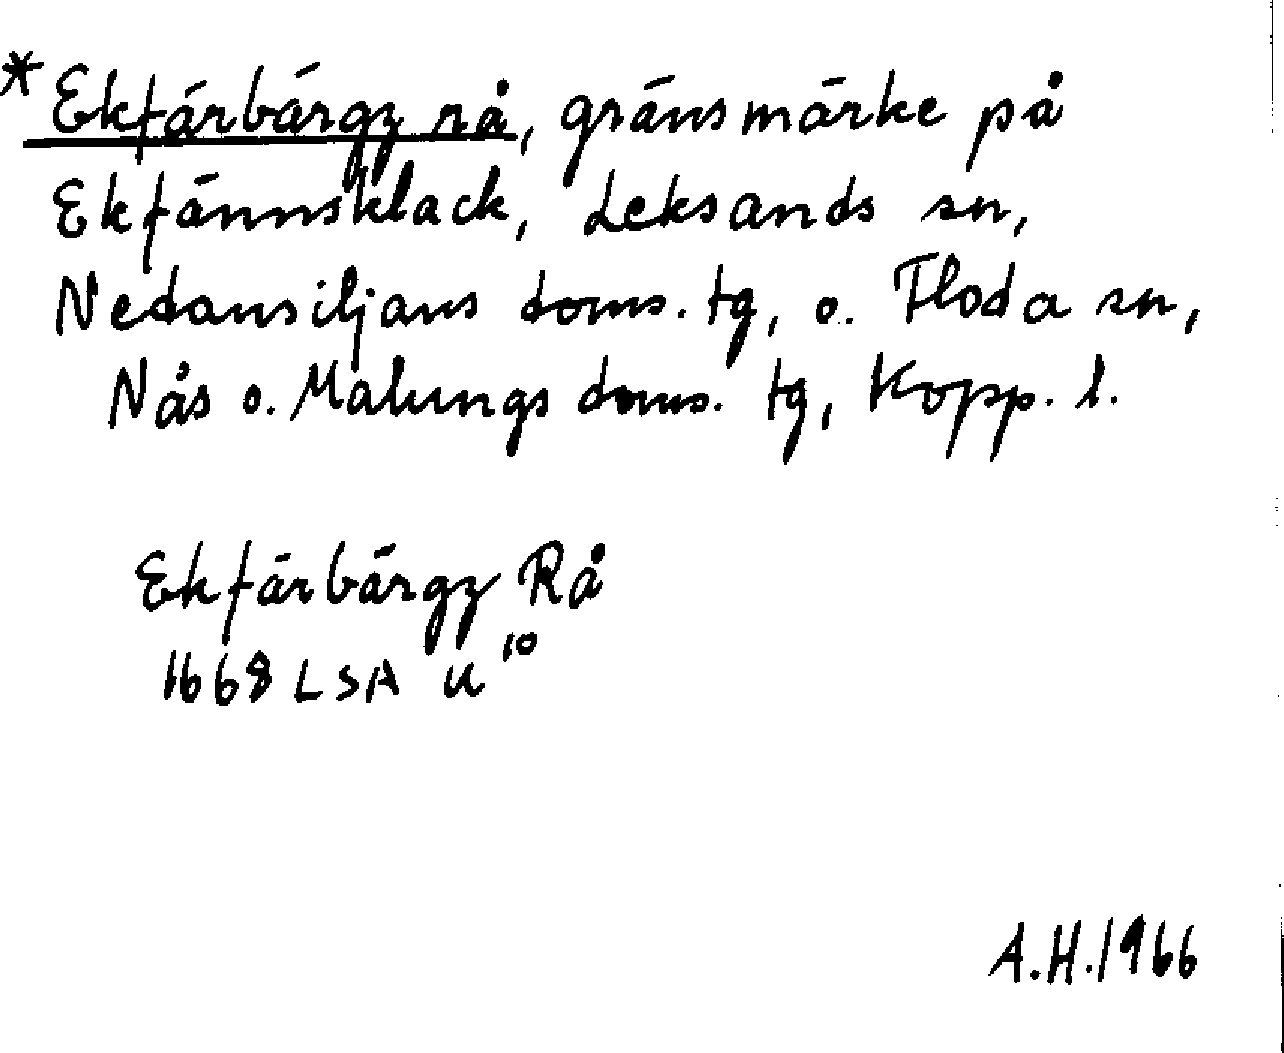 *Ekfärbärgz rå, gränsmärke på
Ekfännsklack, Leksands sn,
Nedansiljans doms. tg, o. Floda sn,
Nås o. Malungs doms. tg, Kopp. l.
Ekfärbärgz Rå
1668 LSA U 10
A.H.1966